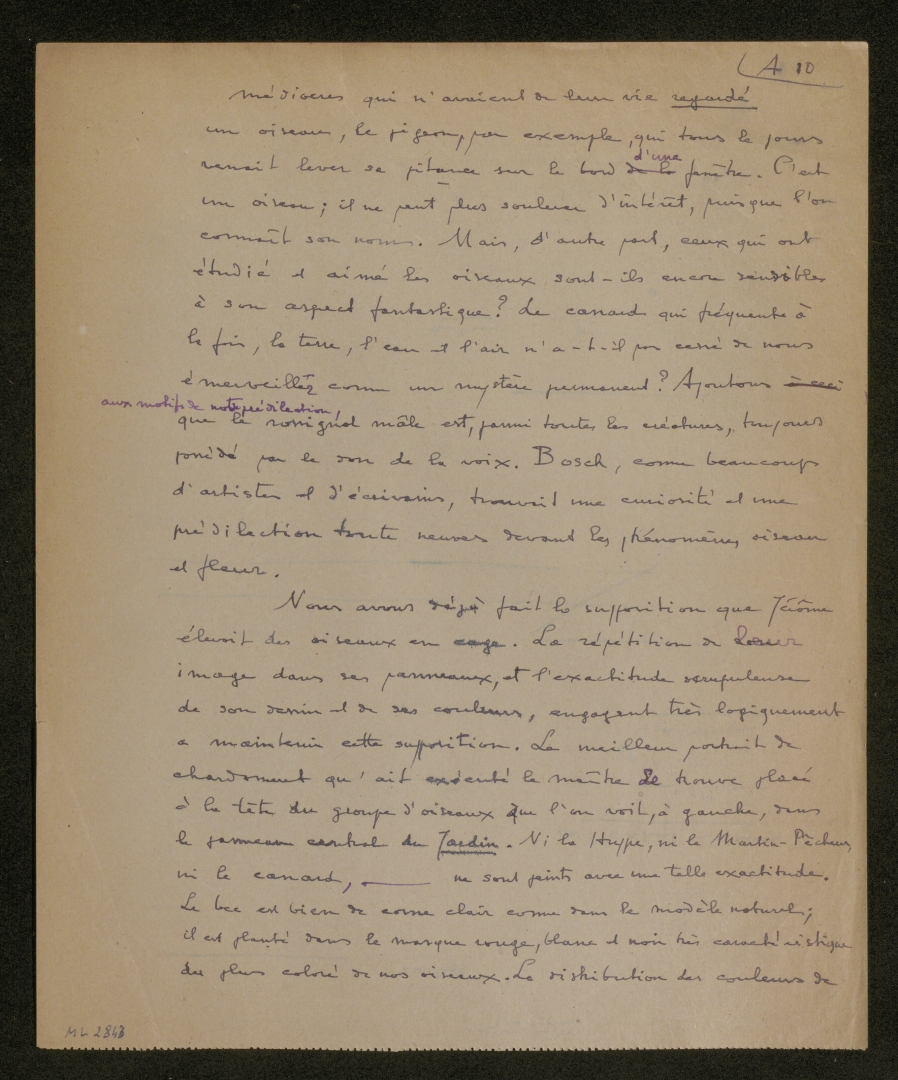 A 10
médiocres qui n'avaient de leur vie regardé
un oiseau, le pigeon, par exemple, qui tous le jours
venait lever sa pitance sur le bord de la d'une fenêtre. C'est
un oiseau; il ne peut plus soulever d'intérêt, puisque l'on
connaît son nom. Mais, d'autre part, ceux qui ont
étudié et aimé les oiseaux sont-ils encore sensibles
à son aspect fantastique? Le canard qui fréquente à
la fois, la terre, l'eau et l'air n'a-t-il pas cessé de nous
émerveiller comme un mystère permanent? Ajoutons à ceci
aux motifs de notre prédilection,
que le rossignol mâle est, parmi toutes les créatures, toujours
possédé par le don de la voix. Bosch, comme beaucoup
d'artistes et d'écrivains, trouvait une curiosité et une
prédilection toute neuves devant les phénomènes oiseau
et fleur.
Nous avons déjà fait la supposition que Jérôme
élevait des oiseaux en cage. La répétition de leur
image dans ses panneaux, et l'exactitude scrupuleuse
de son dessin et de ses couleurs, engagent très logiquement
a maintenir cette supposition. Le meilleur portrait de
chardonneret qu'ait exécuté le maître se trouve placé
à la tête du groupe d'oiseaux que l'on voit, à gauche, dans
le panneau central du Jardin. Ni la Huppe, ni le Martin-Pêcheur,
ni le canard, ne sont peints avec une telle exactitude.
Le bec est bien de corne clair comme dans le modèle naturel;
il est planté dans le masque rouge, blanc et noir très caractéristique
du plus coloré de nos oiseaux. La distribution des couleurs de
ML 2843